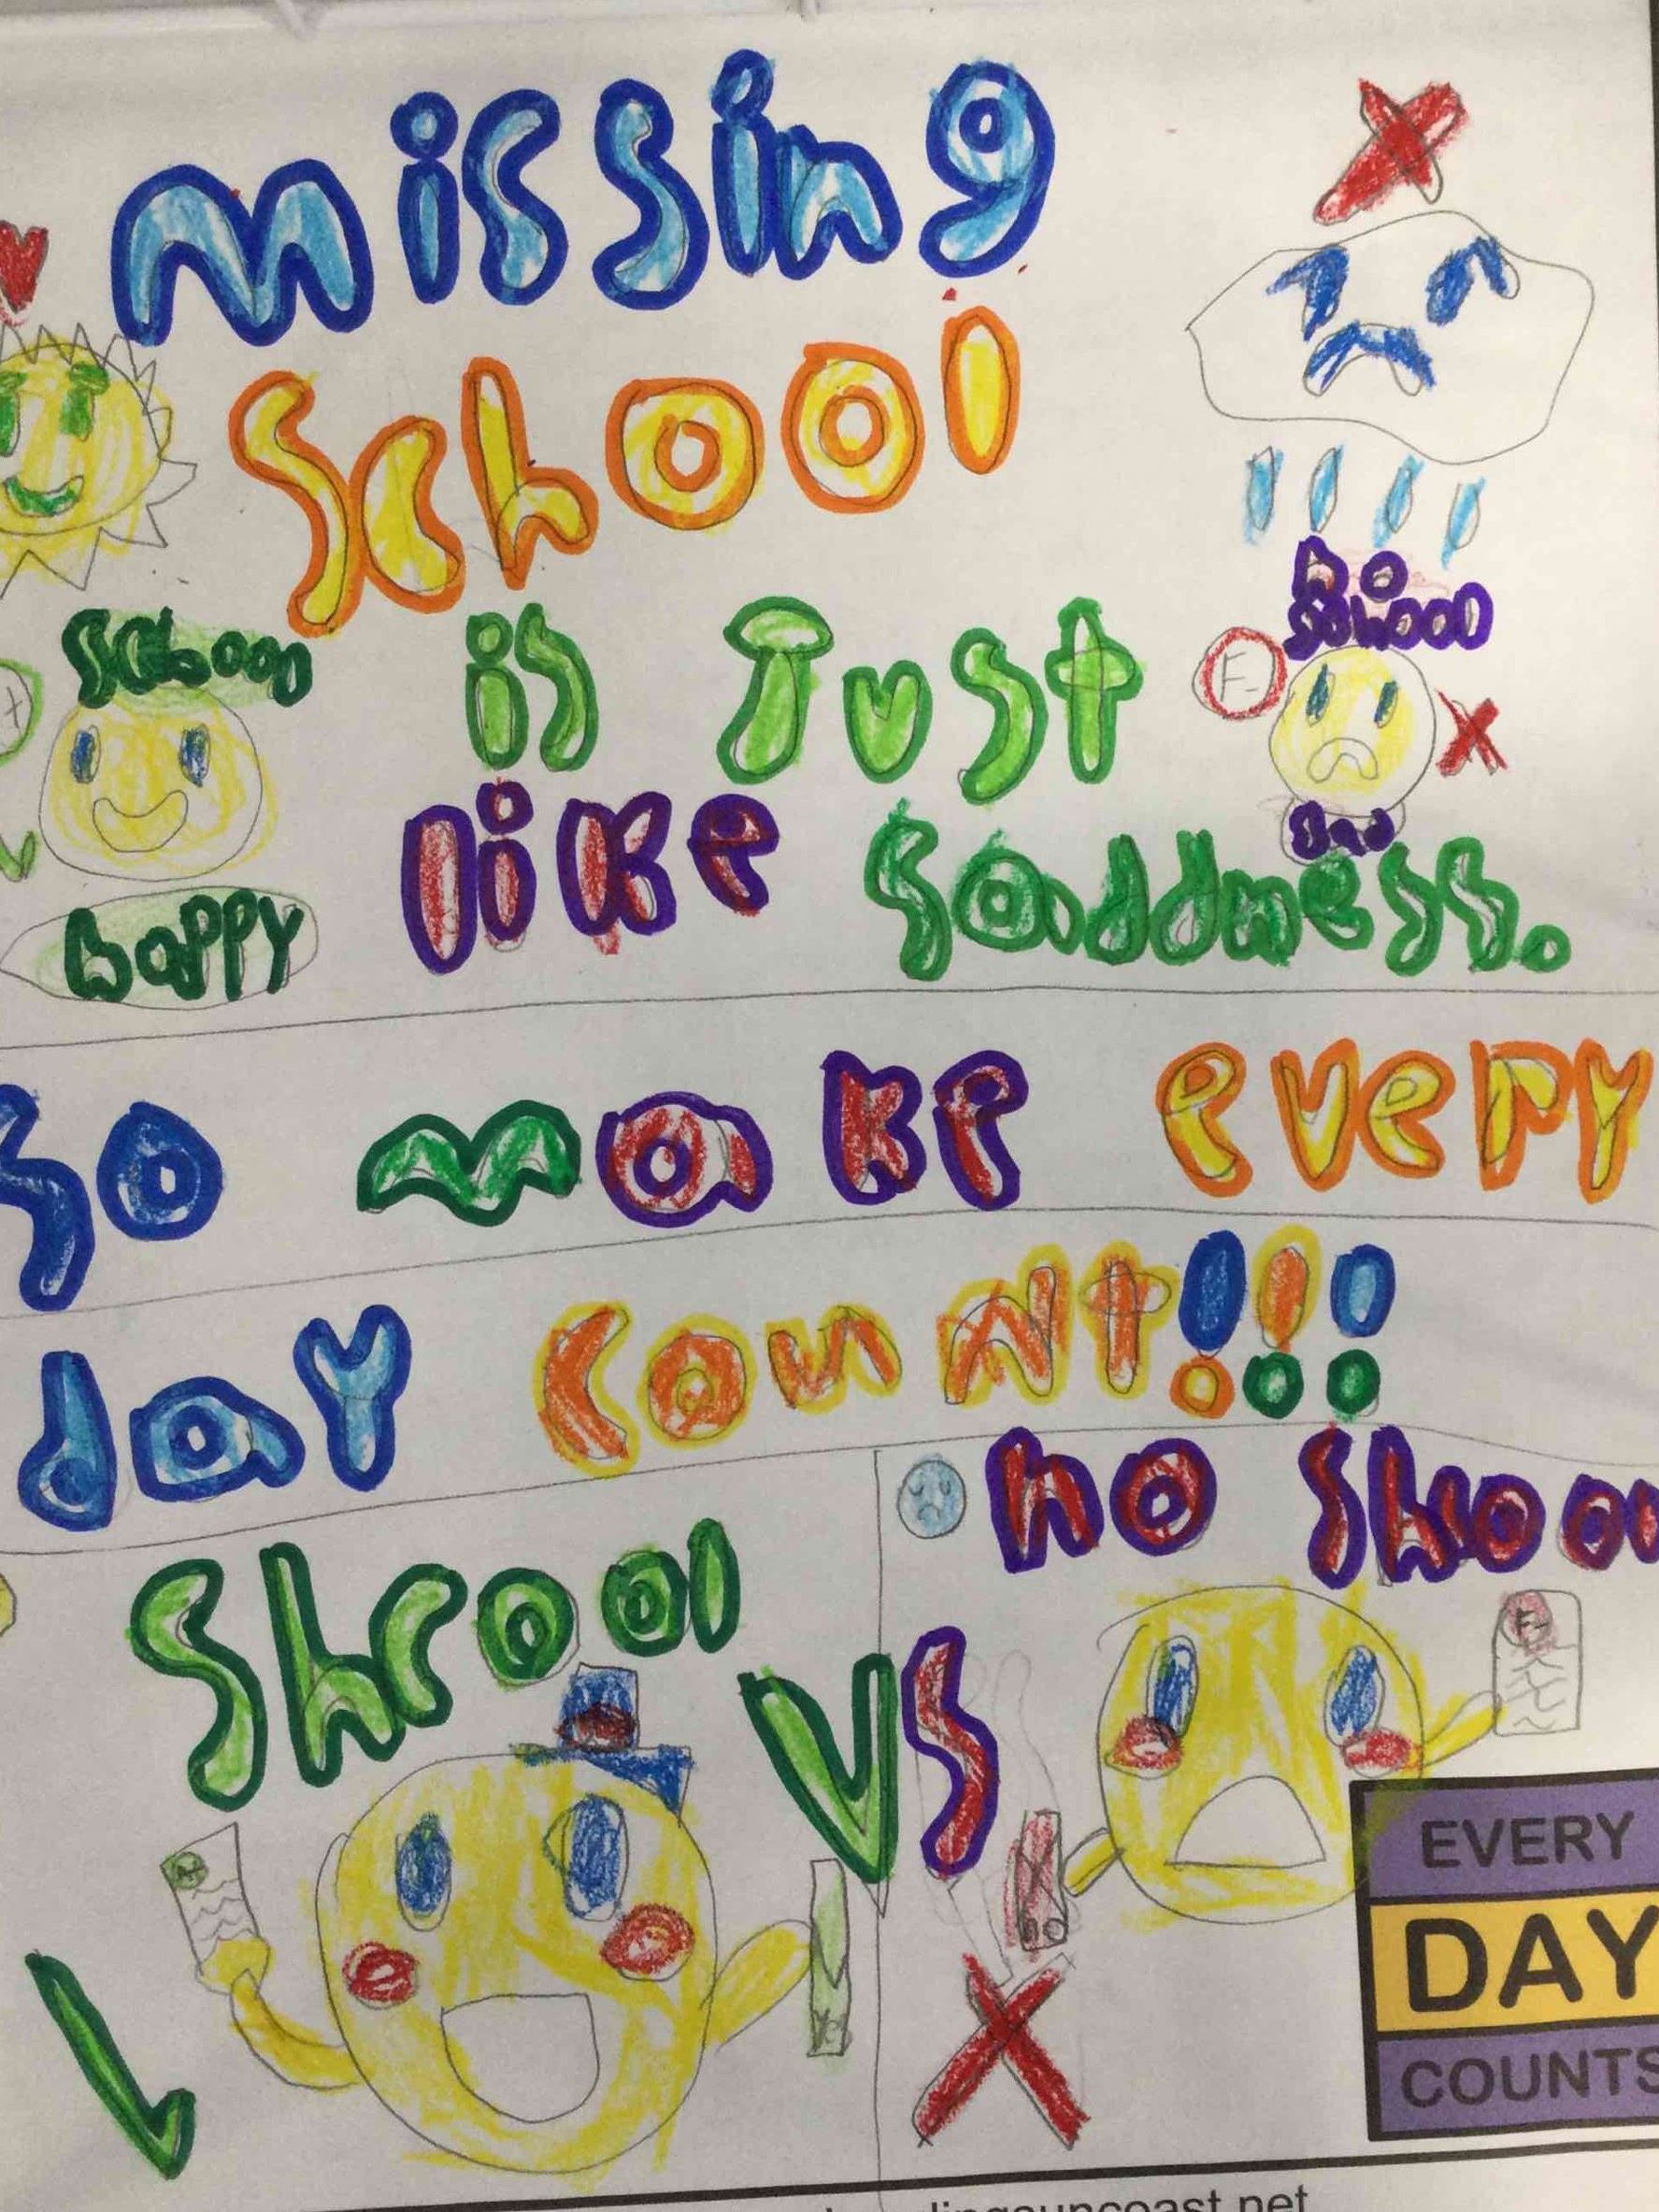 Missing
School
School
is Just
no
School
F-
like
Sad
Saddness.
happy
So make every
day count!!!
Shcool
no Shcool
VS
F-
A+
Yes
NO
EVERY
DAY
COUNTS